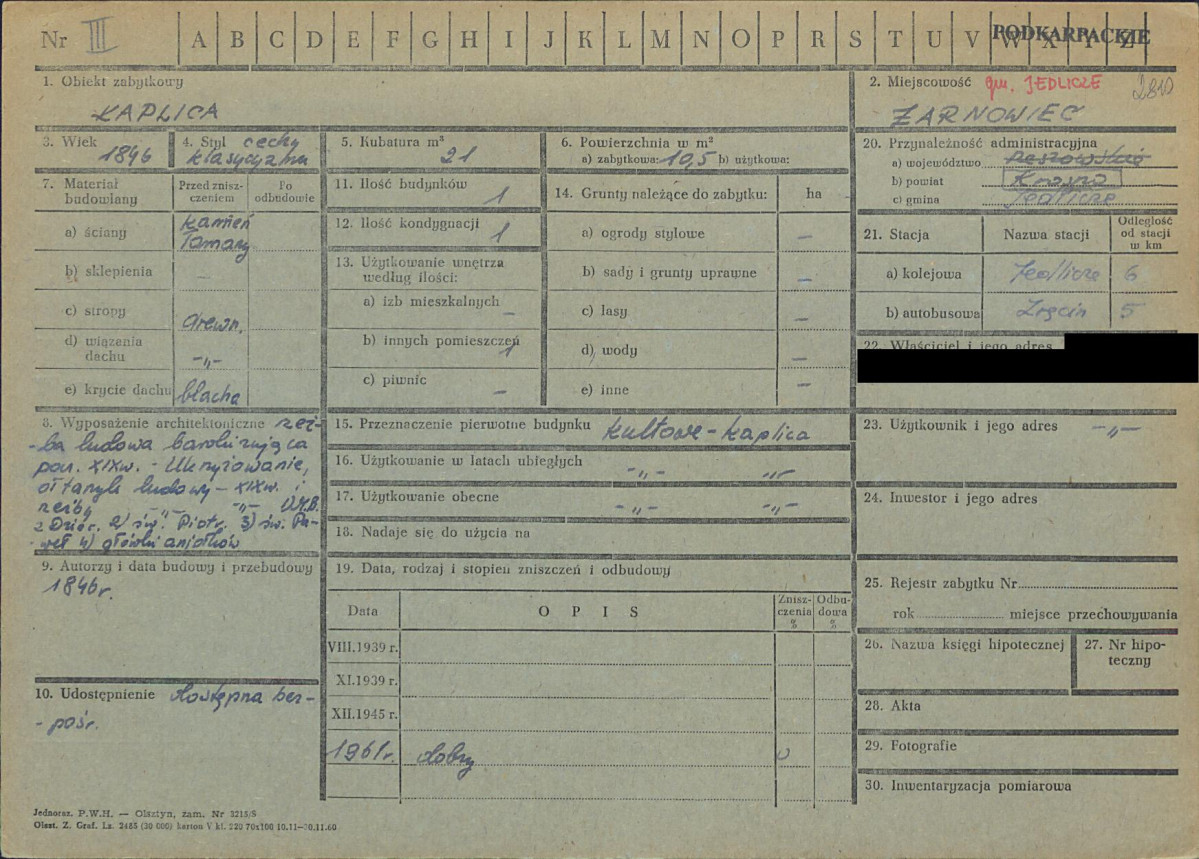 Nr III A B C D E F G H I J K L M N O P R S T U V W X Y Z PODKARPACKIE
1. Obiekt zabytkowy
KAPLICA
2. Miejscowość gm. JEDLICZE
ŻARNOWIEC
3. Wiek
1846
4. Styl cechy
klasycyzmu
5. Kubatura m³
21
6. Powierzchnia w m²
a) zabytkowa: 10,5 b) użytkowa:
20. Przynależność administracyjna
a) województwo rzeszowskie
b) powiat Krosno
c) gmina Jedlicze
7. Materiał budowlany
Przed zniszczeniem
Po odbudowie
a) ściany kamień
łamany
b) sklepienia –
c) stropy drewn.
d) wiązenia
dachu -„-
e) krycie dachu blacha
11. Ilość budynków 1
12. Ilość kondygnacji 1
13. Użytkowanie wnętrza
według ilości:
a) izb mieszkalnych –
b) innych pomieszczeń 1
c) piwnic –
14. Grunty należące do zabytku: ha
a) ogrody stylowe –
b) sady i grunty uprawne –
c) lasy –
d) wody –
e) inne –
21. Stacja Nazwa stacji Odległość
od stacji
w km
a) kolejowa Jedlicze 6
b) autobusowa Zręcin 5
22. Właściciel i jego adres
8. Wyposażenie architektoniczne rzeź-
-ba ludowa barokizująca
poł. XIXw. - Ukrzyżowanie,
ołtarzyk ludowy - XIXw. i
rzeźby -„- M.B.
z Dzieć. 2) św. Piotr. 3) św. Pa-
weł 4) główki aniołków
15. Przeznaczenie pierwotne budynku kultowe - kaplica
16. Użytkowanie w latach ubiegłych -„- -„-
17. Użytkowanie obecne -„- -„-
18. Nadaje się do użycia na
23. Użytkownik i jego adres -„-
24. Inwestor i jego adres
9. Autorzy i data budowy i przebudowy
1846r.
10. Udostępnienie dostępna bez-
-pośr.
19. Data, rodzaj i stopień zniszczeń i odbudowy
Data OPIS Znisz-
czenia
% Odbu-
dowa
%
VIII.1939 r.
XI.1939 r.
XII.1945 r.
1961r. dobry 0
25. Rejestr zabytku Nr
rok miejsce przechowywania
26. Nazwa księgi hipotecznej
27. Nr hipo-
teczny
28. Akta
29. Fotografie
30. Inwentaryzacja pomiarowa
Jednoraz. P.W.H. — Olsztyn, zam. Nr 3215/S
Olszt. Z. Graf. Lz. 2485 (30 000) karton V kl. 220 70x100 10.11—30.11.60